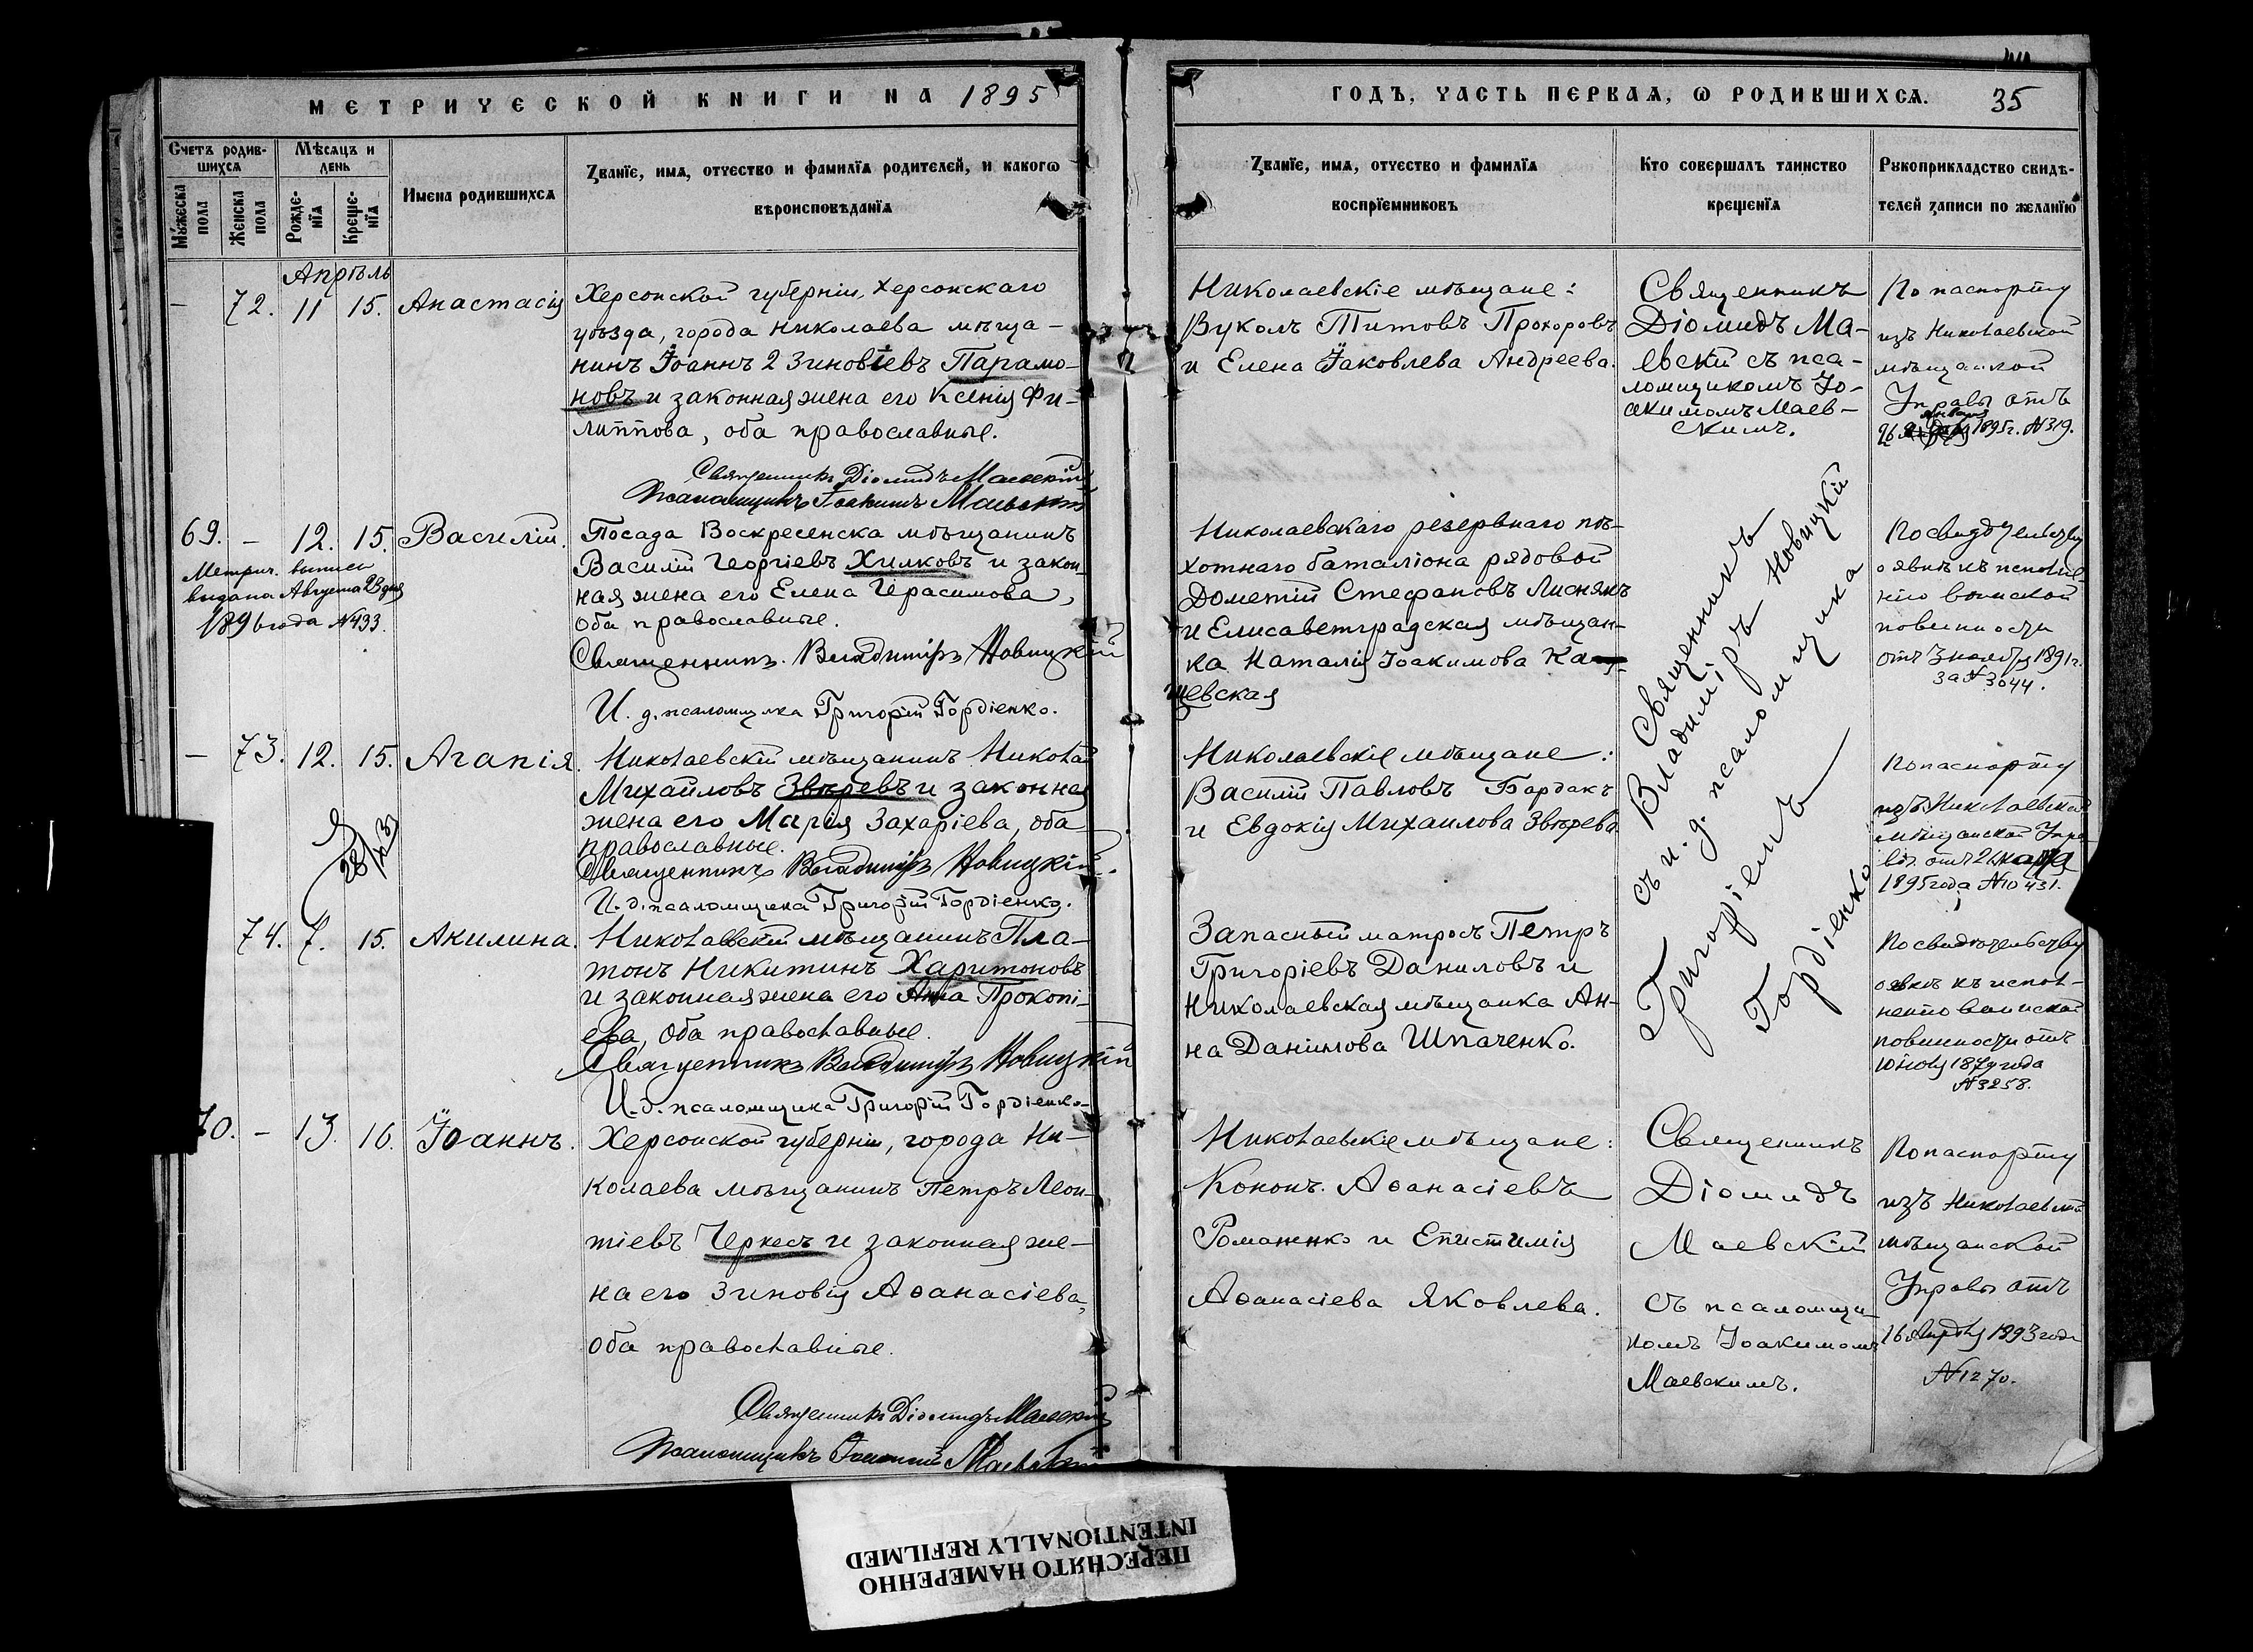 МЕТРИЧЕСКОЙ КНИГИ НА 1895
ГОДЪ, ЧАСТЬ ПЕРВАЯ, Ѡ РОДИВШИХСЯ. 35
Счетъ родив-
шихся
Мѣсяцъ и
день
Мужеска
пола
Женска
пола
Рожде-
нїя
Креще-
нїя
Имена родившихся
Званїе, имя, отчество и фамилїя родителей, и какогѡ
вѣроисповѣданїя
Званїе, имя, отчество и фамилїя
воспрїемниковъ
Кто совершалъ таинство
крещенїя
Рукоприкладство свидѣ-
телей записи по желанїю
Апрѣль
– 72. 11 15. Анастасія
Херсонской губерніи, Херсонскаго
уѣзда, города Николаева мѣща-
нинъ Іоаннъ 2 Зиновіевъ Парамо-
новъ и законная жена его Ксенія Фи-
липпова, оба православные.
Священникъ Діомидъ Маевскій
Псаломщикъ Іоакимъ Маевскій
Николаевскіе мѣщане:
Вуколъ Титовъ Прохоровъ
и Елена Іаковлева Андреева.
Священникъ
Діомидъ Ма-
евскій съ пса-
ломщикомъ Іо-
акимомъ Маев-
скимъ.
По паспорту
изъ Николаевской
мѣщанской
Управы отъ
26 января 1895 г. №319.
69. – 12. 15. Василій.
Метрич. выпись
выдана Августа 23 дня
1896 года №433.
Посада Воскресенска мѣщанинъ
Василій Георгіевъ Хилковъ и закон-
ная жена его Елена Герасимова,
оба православные.
Священникъ Владиміръ Новицкій
И. д. псаломщика Григорій Гордіенко.
Николаевскаго резервнаго пѣ-
хотнаго баталіона рядовой
Дометій Стефановъ Лиснякъ
и Елисаветградская мѣщан-
ка Наталія Іоакимова Ка-
щевская
Священникъ
Владиміръ Новицкій
съ и. д. псаломщика
Григоріемъ
Гордіенко
По свидѣтельству
о явкѣ къ исполне-
нію воинской
повинности
отъ 3 ноября 1891 г.
за №3044.
– 73. 12. 15. Агапія.
Николаевскій мѣщанинъ Николай
Михайловъ Звѣревъ и законная
жена его Марія Захаріева, оба
православные.
Священникъ Владиміръ Новицкій.
И. д. псаломщика Григорій Гордіенко.
Николаевскіе мѣщане:
Василій Павловъ Бардакъ
и Евдокія Михаилова Звѣрева
По паспорту
изъ Николаевской
мѣщанской Упра
вы отъ
1895 года №10431.
74. 7. 15. Акилина.
Николаевскій мѣщанинъ Пла-
тонъ Никитинъ Харитоновъ
и законная жена его Анна Прокопі-
ева, оба православные.
Священникъ Владиміръ Новицкій
И. д. псаломщика Григорій Гордіенко
Запасный матросъ Петръ
Григоріевъ Даниловъ и
Николаевская мѣщанка Ан-
на Даніилова Шпаченко.
По свидѣтельству
о явкѣ къ испол-
ненію воинской
повинности отъ
1879 года
№3258.
70. – 13. 16. Іоаннъ.
Херсонской губерніи, города Ни-
колаева мѣщанинъ Петръ Леон-
тіевъ Черкесъ и законная же-
на его Зиновія Аѳанасіева,
оба православные.
Священникъ Діомидъ Маевскій
Псаломщикъ Іоакимъ Маевскій
Николаевскіе мѣщане:
Кононъ Аѳанасіевъ
Романенко и Епистимія
Аѳанасіева Яковлева.
Священникъ
Діомидъ
Маевскій
съ псаломщи-
комъ Іоакимомъ
Маевскимъ.
По паспорту
изъ Николаевской
мѣщанской
Управы отъ
16 Апрѣля 1893 года
№1270.
ПЕРЕСНЯТО НАМЕРЕННО
INTENTIONALLY REFILMED